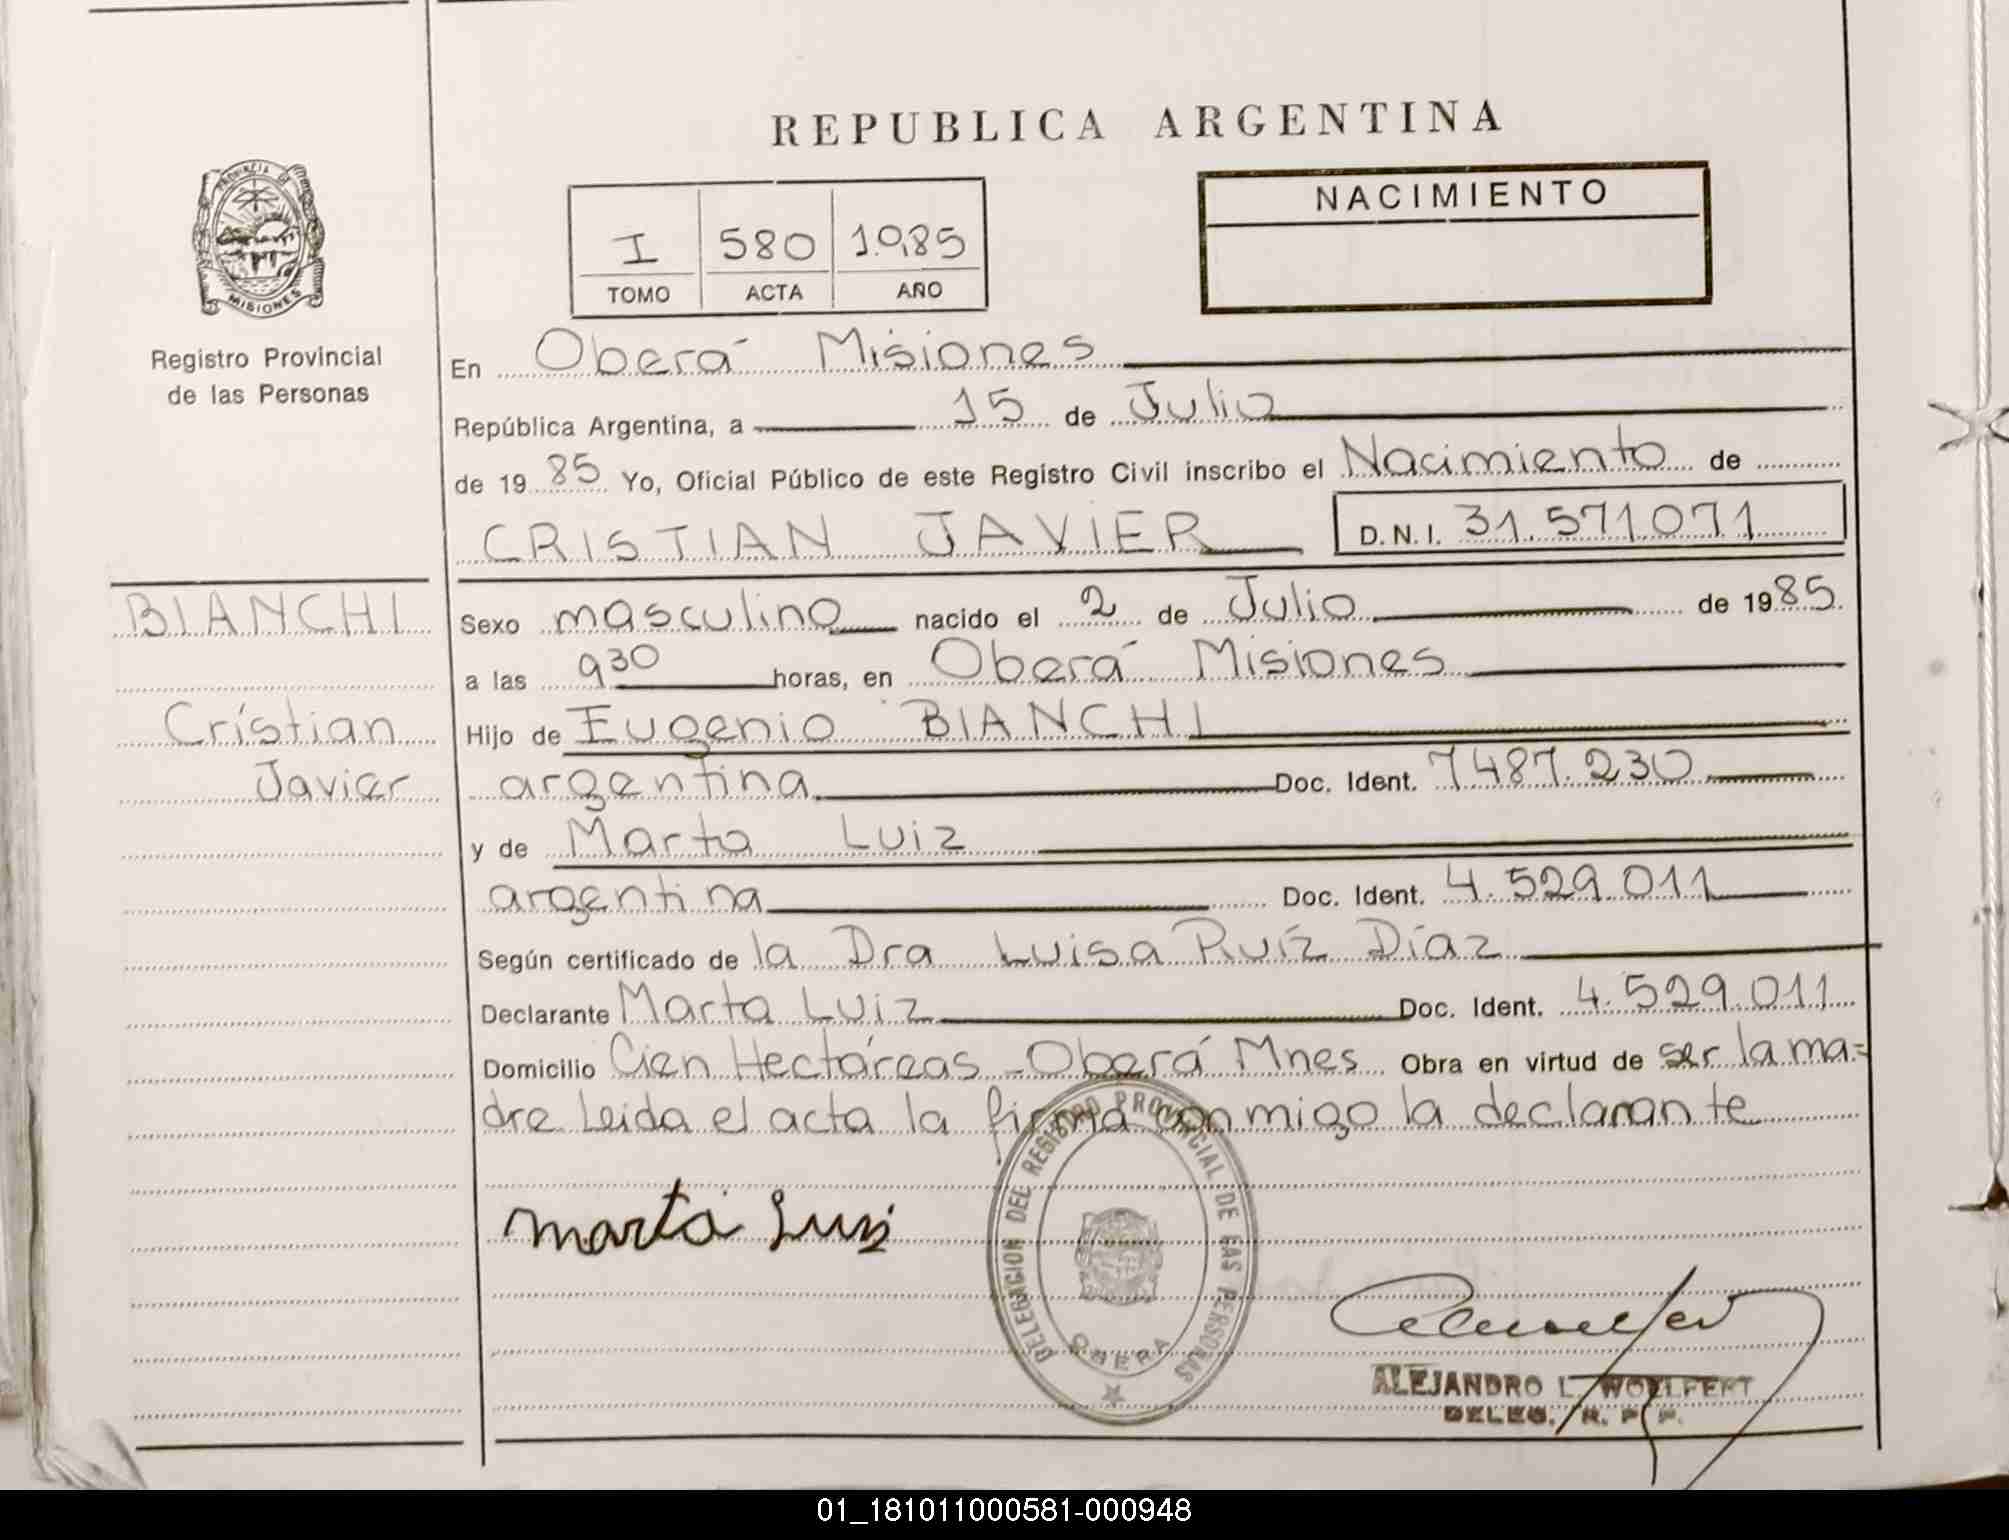 REPUBLICA ARGENTINA
PROVINCIA DE MISIONES
Registro Provincial
de las Personas
I 580 1.985
TOMO ACTA AÑO
NACIMIENTO
En Oberá Misiones
República Argentina, a 15 de Julio
de 19 85 Yo, Oficial Público de este Registro Civil inscribo el Nacimiento de
CRISTIAN JAVIER D.N.I. 31.571.071
BIANCHI
Cristian
Javier
Sexo masculino nacido el 2 de Julio de 1985
a las 9 30 horas, en Oberá Misiones
Hijo de Eugenio BIANCHI
argentina Doc. Ident. 7487.230
y de Marta Luiz
argentina Doc. Ident. 4.529.011
Según certificado de la Dra Luisa Ruíz Díaz
Declarante Marta Luiz Doc. Ident. 4.529.011
Domicilio Cien Hectáreas - Oberá Mnes Obra en virtud de ser la ma=
dre Leida el acta la firma conmigo la declarante
DELEGACION DEL REGISTRO PROVINCIAL DE LAS PERSONAS
OBERA
Marta Luiz
ALEJANDRO L. WOELFERT
DELEG. R. P. P.
01_181011000581-000948